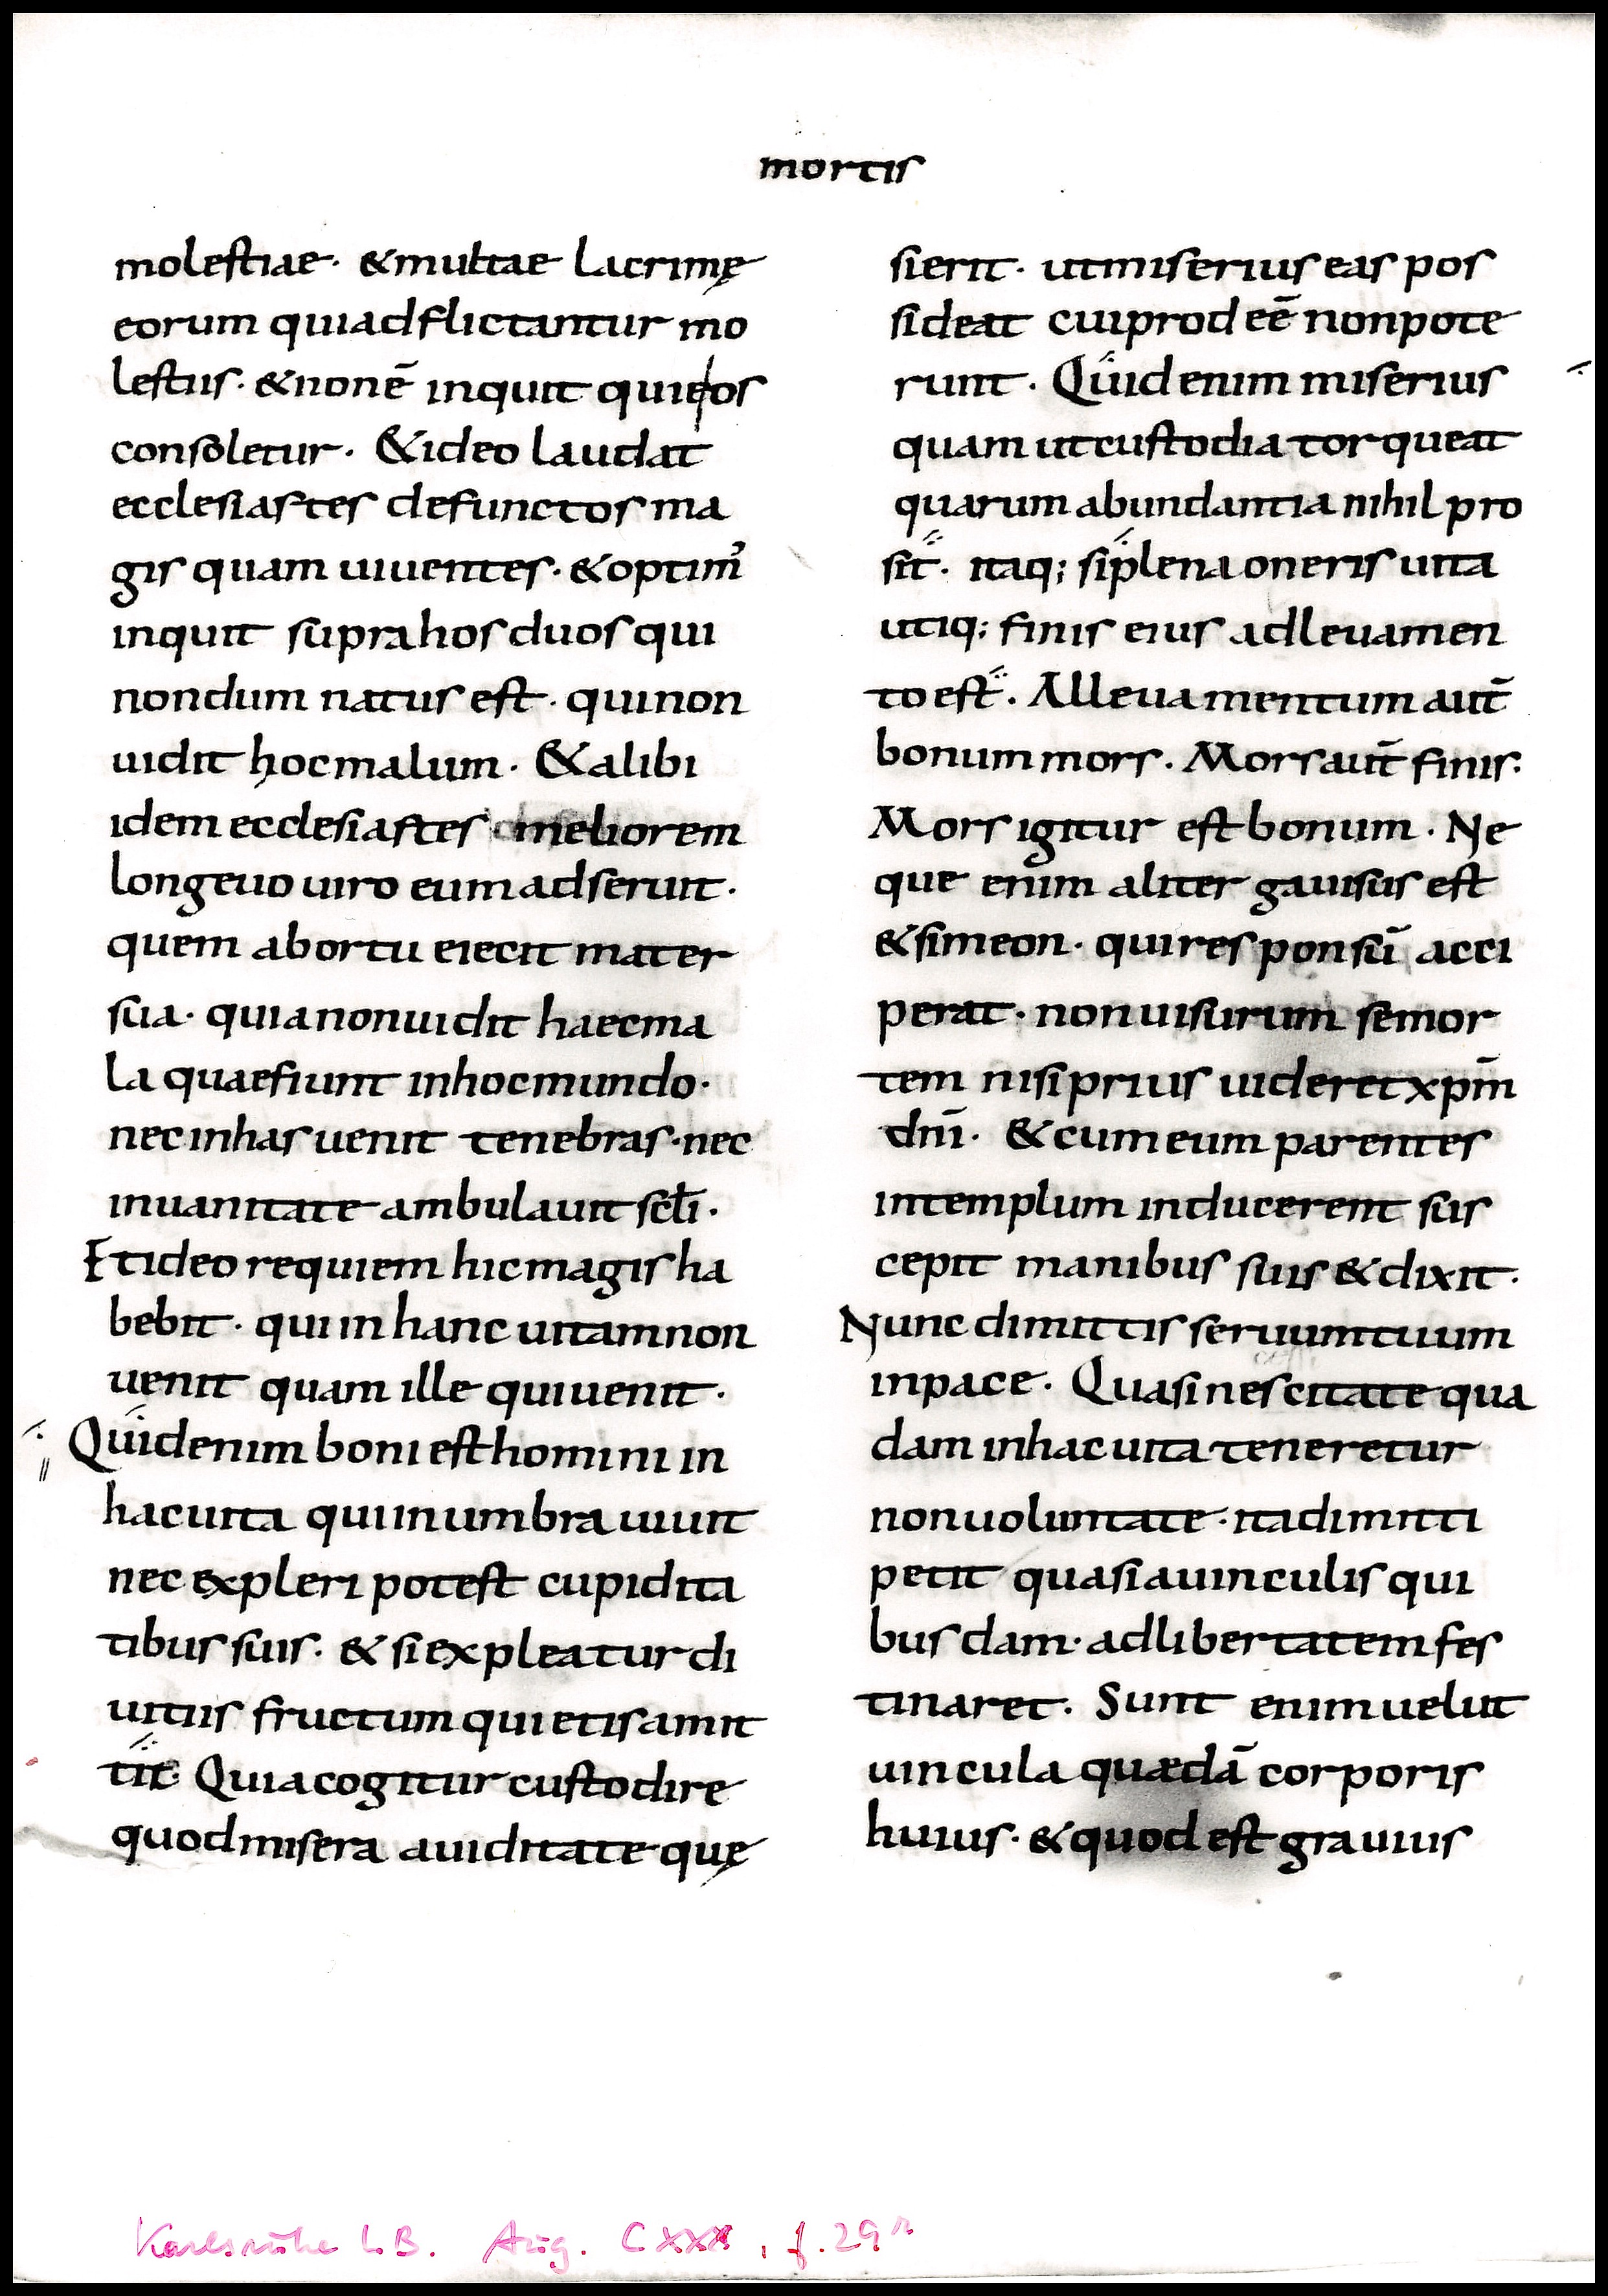 mortis
molestiae· & multae lacrimę
eorum qui adflictantur mo
lestiis· & non ē inquit qui eos
consoletur· & ideo laudat
ecclesiastes defunctos ma
gis quam uiuentes· & optim᾿
inquit supra hos duos qui
nondum natus est· qui non
uidit hoc malum· & alibi
idem ecclesiastes meliorem
longeuo uiro eum adseruit·
quem abortu eiecit mater
sua· quia non uidit haec ma
la quae fiunt in hoc mundo·
nec in has uenit tenebras· nec
in uanitate ambulauit scłi·
Et ideo requiem hic magis ha
bebit· qui in hanc uitam non
uenit quam ille qui uenit·
Quid enim boni est homini in
hac uita qui in umbra uiuit
nec expleri potest cupidita
tibus suis· & si expleatur di
uitiis fructum quietis amit
tit· Quia cogitur custodire
quod misera auiditate quę
sierit· ut miserius eas pos
sideat cui prodeēē non pote
runt· Quid enim miserius
quam ut custodia torqueat
quarum abundantia nihil pro
sit· itaq; si plena oneris uita
utiq; finis eius adleuamen
to est· Alleuamentum aut̄
bonum mors· Mors aut̄ finis·
Mors igitur est bonum· Ne
que enim aliter gauisus est
& simeon· qui responsū acci
perat· non uisurum se mor
tem nisi prius uideret xpm̄
dnī· & cum eum parentes
in templum inducerent sus
cepit manibus suis & dixit·
Nunc dimittis seruum tuum
in pace· Quasi nescitate qua
dam in hac uita teneretur
non uoluntate· ita dimitti
petit quasi a uinculis qui
busdam· ad libertatem fes
tinaret· Sunt enim uelut
uincula quaedā corporis
huius· & quod est grauius
Karlsruhe L.B. Aug. CXXX, f. 29r